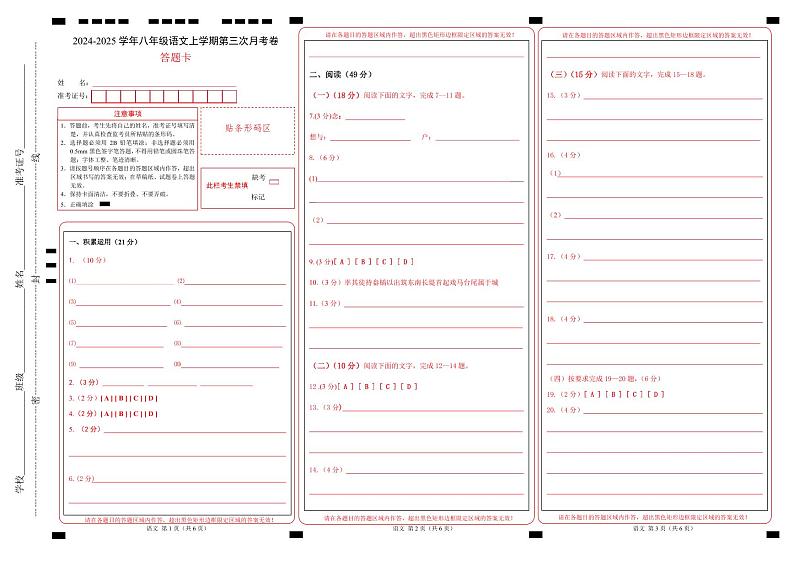 2024-2025 学年八年级语文上学期第三次月考卷
答题卡
姓 名：
准考证号：
注意事项
1．答题前，考生先将自己的姓名，准考证号填写清
楚，并认真检查监考员所粘贴的条形码。
2．选择题必须用 2B 铅笔填涂；非选择题必须用
0.5mm 黑色签字笔答题，不得用铅笔或圆珠笔答
题；字体工整、笔迹清晰。
3．请按题号顺序在各题目的答题区域内作答，超出
区域书写的答案无效；在草稿纸、试题卷上答题
无效。
4．保持卡面清洁，不要折叠、不要弄破。
5．正确填涂
贴条形码区
此栏考生禁填
缺考
标记
学校
班级
姓名
准考证号
密
封
线
一、积累运用（21 分）
1. （10 分）
(1)
(2)
(3)
(4)
(5)
(6)
(7)
(8)
(9)
(0)
2. （3 分）
3.（2 分）[ A ] [ B ] [ C ] [ D ]
4.（2 分）[ A ] [ B ] [ C ] [ D ]
5. （2 分）
6. (2 分)
请在各题目的答题区域内作答，超出黑色矩形边框限定区域的答案无效！
语文 第 1 页（共 6 页）
请在各题目的答题区域内作答，超出黑色矩形边框限定区域的答案无效！
二、阅读（49 分）
（一）（18 分）阅读下面的文字，完成 7—11 题。
7.(3 分)念：
想与：
户：
8. （6 分）
(1)
（2）
9. (3 分)[ A ] [ B ] [ C ] [ D ]
10.（3 分）率其徒持畚锸以出筑东南长堤首起戏马台尾属于城
11.（3 分）
（二）（10 分）阅读下面的文字，完成 12—14 题。
12.(3 分)[ A ] [ B ] [ C ] [ D ]
13.（3 分）
14.（4 分）
请在各题目的答题区域内作答，超出黑色矩形边框限定区域的答案无效！
语文 第 2 页（共 6 页）
请在各题目的答题区域内作答，超出黑色矩形边框限定区域的答案无效！
（三）（15 分）阅读下面的文字，完成 15—18 题。
15.（3 分）
16.（4 分）
（1）
（2）
17.（4 分）
18.（4 分）
（四）按要求完成 19—20 题。（6 分）
19.（2 分）[ A ] [ B ] [ C ] [ D ]
20.（4 分）
请在各题目的答题区域内作答，超出黑色矩形边框限定区域的答案无效！
语文 第 3 页（共 6 页）